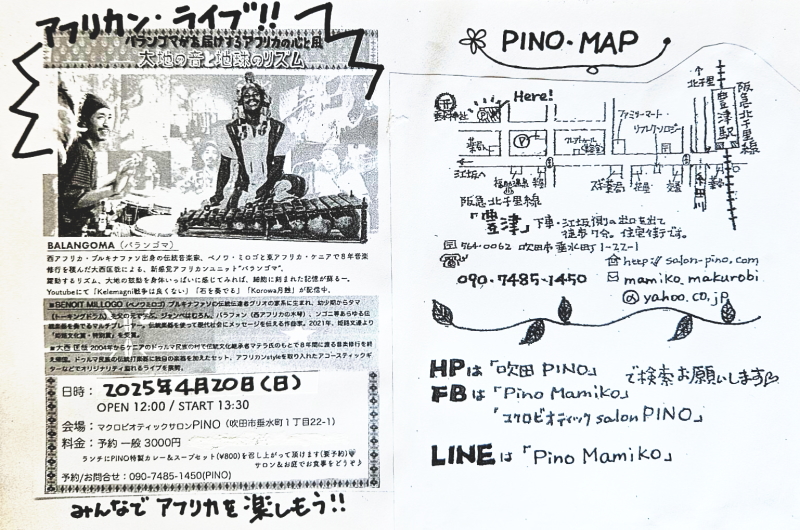 アフリカン・ライブ!!
バランゴマがお届けするアフリカの心と風
大地の音と地球のリズム
BALANGOMA（バランゴマ）
西アフリカ・ブルキナファソ出身の伝統音楽家、ベノワ・ミロゴと東アフリカ・ケニアで8年音楽
修行を積んだ大西匡哉による、新感覚アフリカンユニット"バランゴマ"。
躍動するリズム、大地の鼓動を身体いっぱいに感じてみれば、細胞に刻まれた記憶が蘇るー。
Youtubeにて「Kelemagni戦争は良くない」「石を奏でる」「Korowa月蝕」が配信中。
■BENOIT MILLOGO（ベノワミロゴ）ブルキナファソの伝統伝達者グリオの家系に生まれ、幼少期からタマ
（トーキングドラム）を父の元で学ぶ。ジャンベはむろん、バラフォン（西アフリカの木琴）、ンゴニ等あらゆる伝
統楽器を奏でるマルチプレーヤー。伝統楽器を使って現代社会にメッセージを伝える作曲家。2021年、姫路文連より
「姫路文化賞・特別賞」を受賞。
■大西匡哉 2004年からケニアのドゥルマ民族の村で伝統文化継承者マテラ氏のもとで8年間に渡る音楽修行を終
え帰国。ドゥルマ民族の伝統打楽器に独自の楽器を加えたセット、アフリカンstyleを取り入れたアコースティックギ
ターなどでオリジナリティ溢れるライブを展開。
日時： 2025年4月20日(日)
OPEN 12:00 / START 13:30
会場：マクロビオティックサロンPINO（吹田市垂水町1丁目22-1）
料金：予約 一般 3000円
ランチにPINO特製カレー&スープセット(¥800)を召し上がって頂けます(要予約)
サロン&お庭でお食事をどうぞ♪
予約/お問合せ：090-7485-1450(PINO)
みんなで アフリカを 楽しもう!!
PINO・MAP
Here!
P
北千里
阪急北千里線
豊津駅
ファミリーマート・
リフレクソロジー
薬局
江坂へ
スギ薬局
交番
阪急北千里線
「豊津」下車・江坂側の出口を出て
徒歩7分。住宅街です。
564-0062 吹田市垂水町1-22-1
090-7485-1450
http://salon-pino.com
mamiko_makurobi
@yahoo.co.jp
HPは「吹田 PINO」 で検索お願いします
FBは「Pino Mamiko」
「マクロビオティック salon PINO」
LINEは「Pino Mamiko」